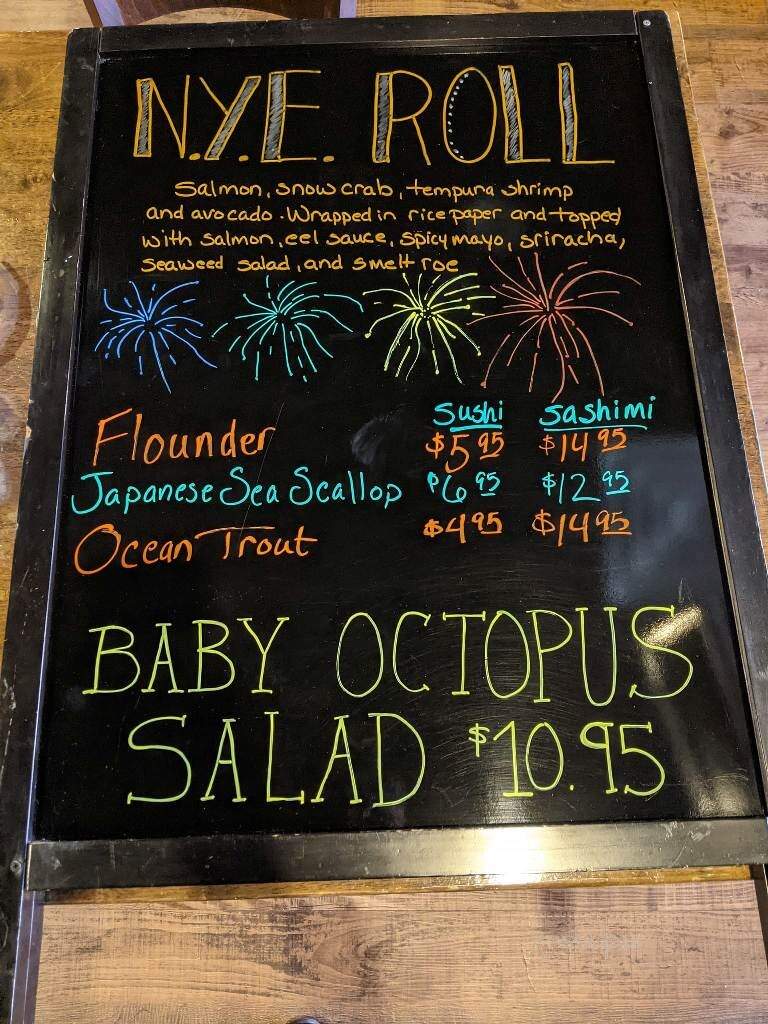 N.Y.E. ROLL
Salmon, snow crab, tempura shrimp
and avocado. Wrapped in rice paper and topped
with salmon, eel sauce, spicy mayo, sriracha,
seaweed salad, and smelt roe
Sushi Sashimi
Flounder $5.95 $14.95
Japanese Sea Scallop $6.95 $12.95
Ocean Trout $4.95 $14.95
BABY OCTOPUS
SALAD $10.95